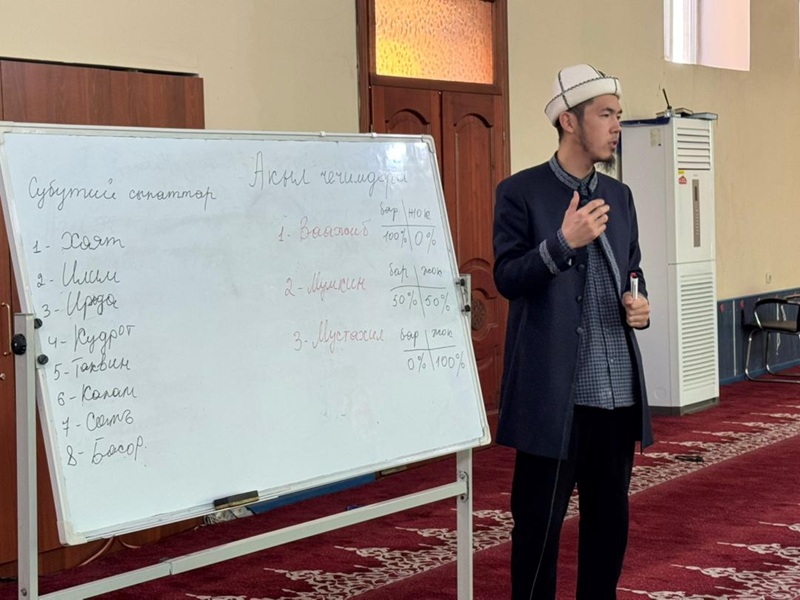 Субутий сыпаттар
1- Хаят
2- Илим
3- Ирада
4- Кудрот
5- Таквин
6- Калам
7- Самъ
8- Басор.
Акыл чечимдери
1- Ваажиб бар жок
100% 0%
2- Мумкин бар жок
50% 50%
3- Мустахил бар жок
0% 100%